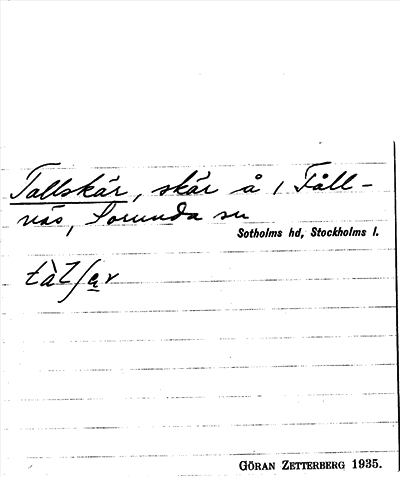 Tallskär, skär å 1 Fåll-
näs, Sorunda sn
Sotholms hd, Stockholms l.
tàlʃa̲r
GÖRAN ZETTERBERG 1935.